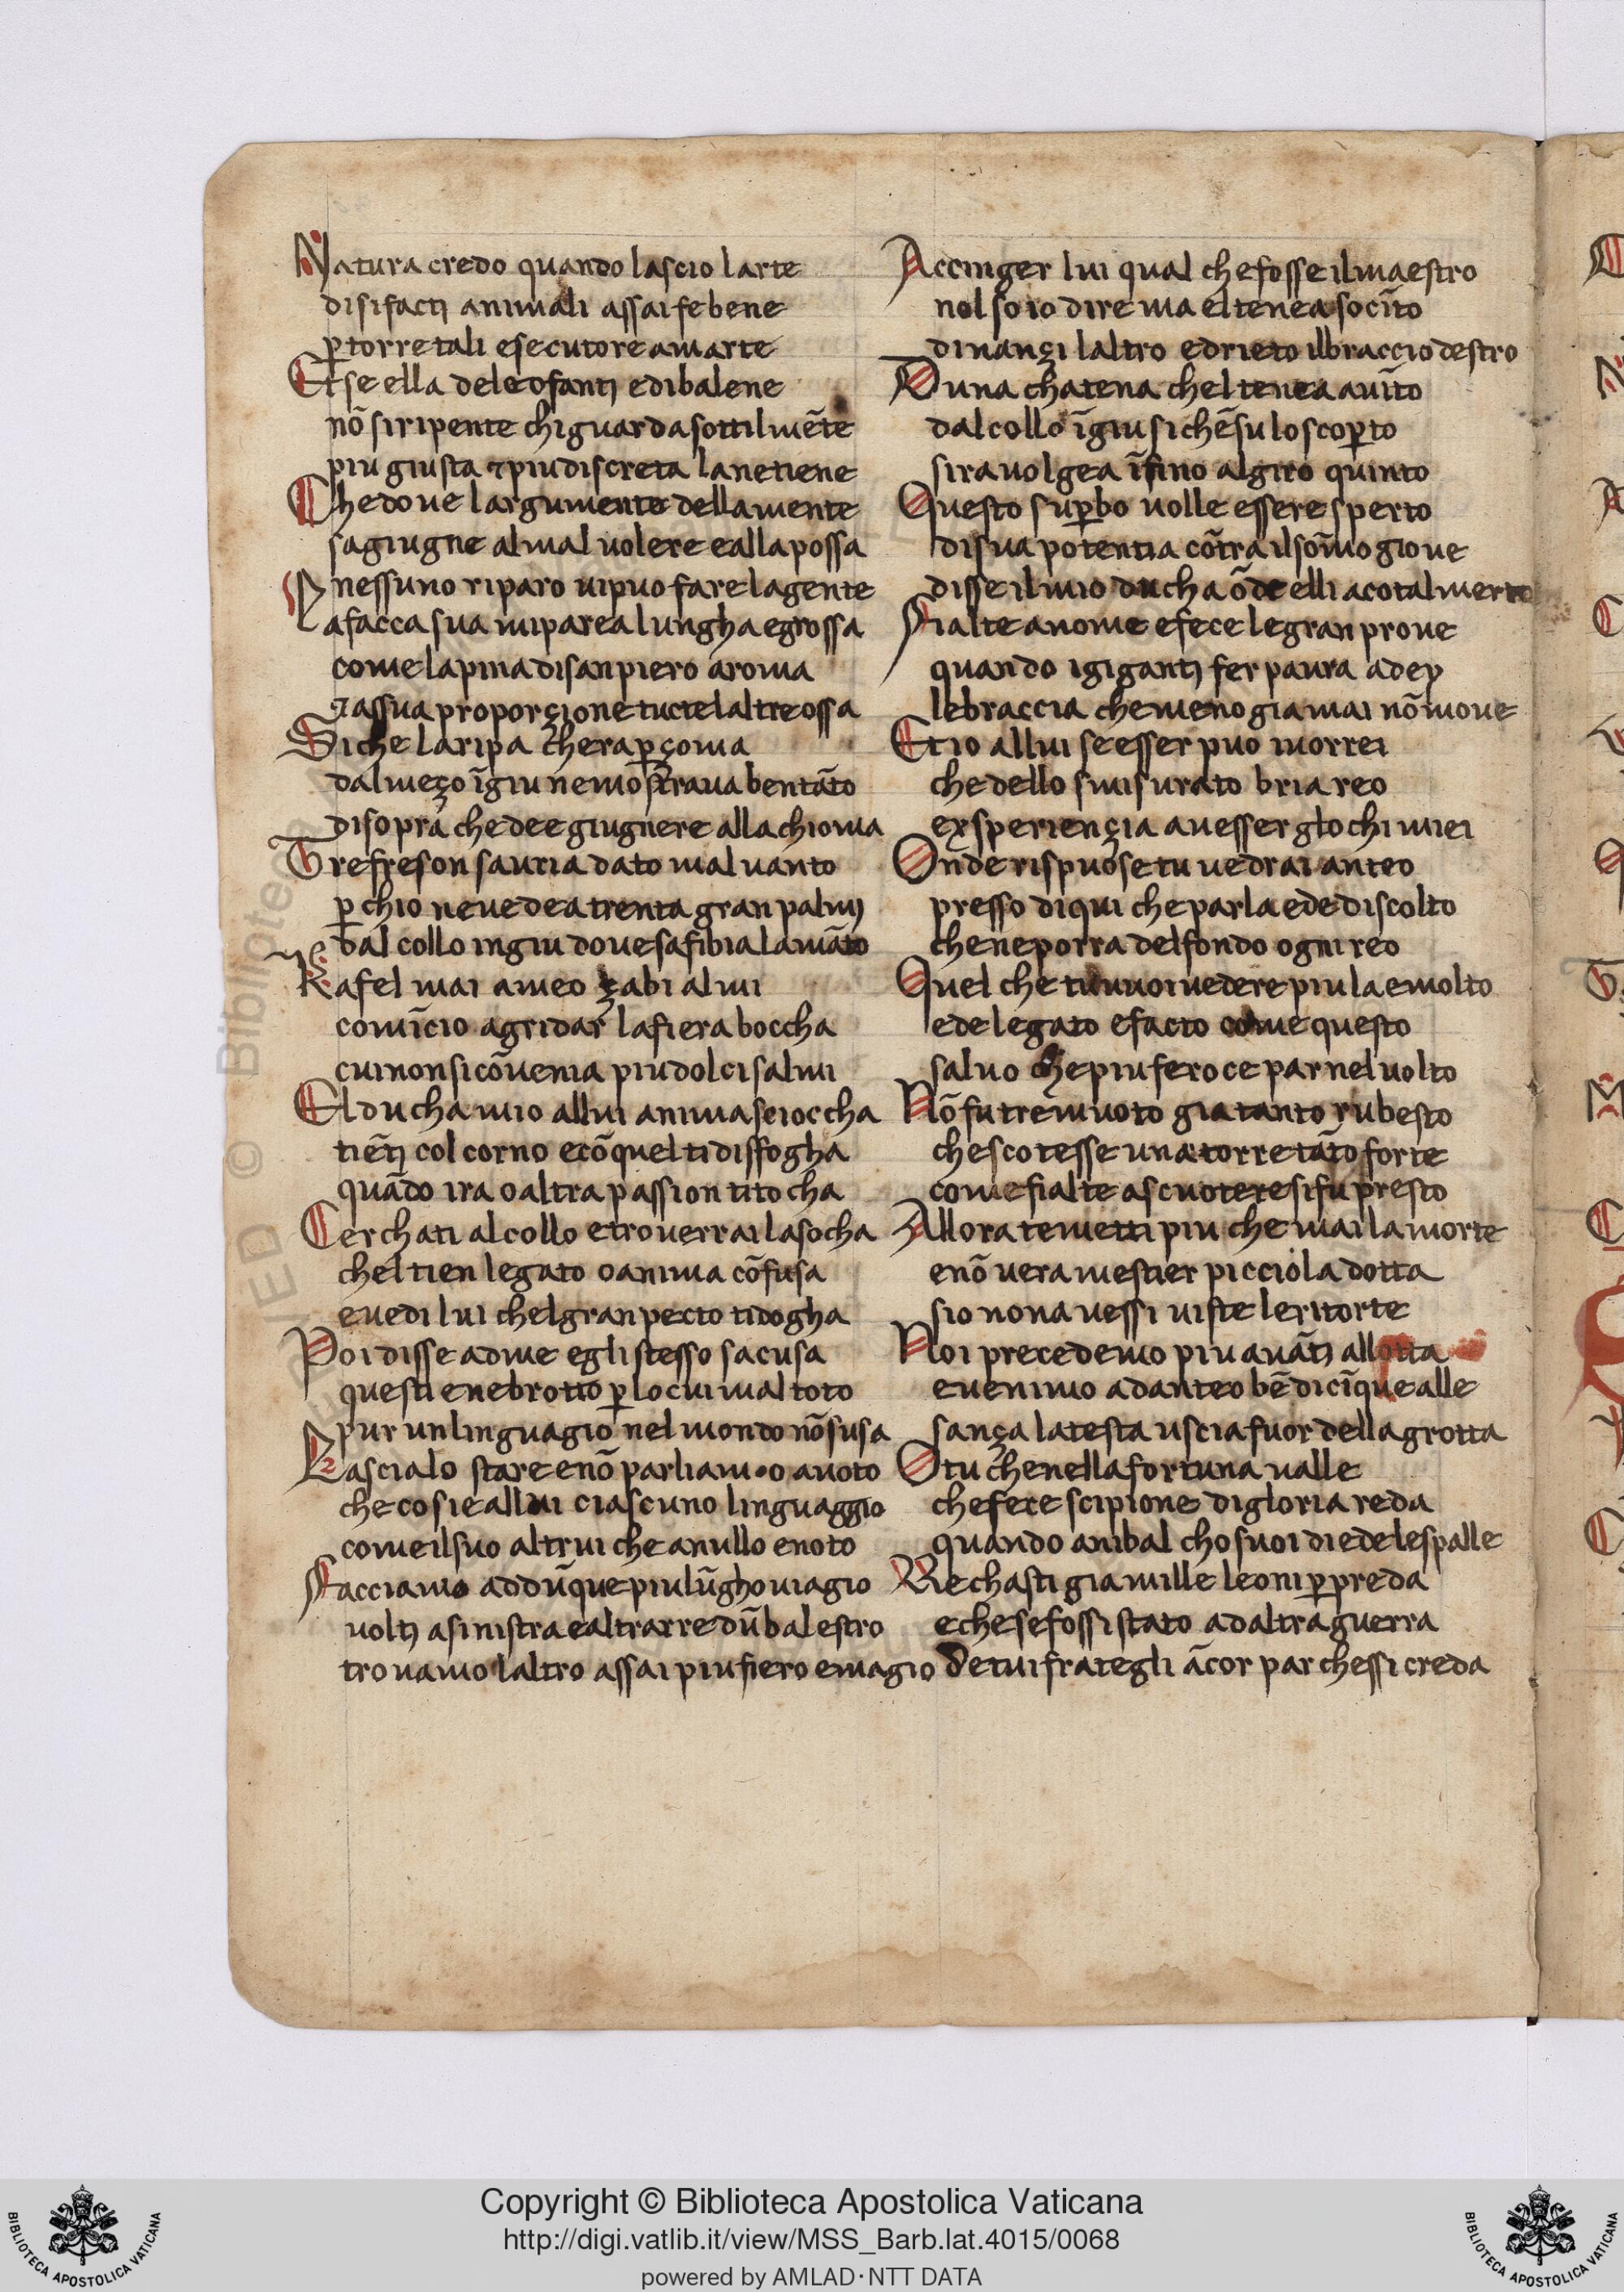 Natura credo quando lascio larte
disifacti animali assai febene
ꝑ torre tali esecutore amarte
Et se ella deleofanti edibalene
nō siripente chi guarda sottilmēte
piu giusta ⁊ piu discreta lanetiene
Che doue largumento dellamente
sagiugne almal uolere eallapossa
nessuno riparo uipuo fare lagente
La facca sua miparea lungha egrossa
come lapina disanpiero aroma
⁊ assua proporçione tucte laltre ossa
Siche laripa chera ꝑçoma
dalmeço īgiu nemostraua bentāto
disopra che dee giugnere alla chioma
Tre freson sauria dato mal uanto
ꝑ chio neuedea trenta gran palmi
dal collo ingiu doue safibia lamāto
Rafel mai ameo çabi almi
comīcio agridar lafiera boccha
cui non sicōuenia piu dolci salmi
El ducha mio allui anima scioccha
tiēti col corno ecō quel ti disfogha
quādo ira o altra passion titocha
Cerchati al collo etrouerrai lasocha
cheltien legato o anima cōfusa
euedi lui chelgran pecto tidogha
Poi disse adme egli stesso sacusa
questi enebrotto ꝑ lo cui mal toto
pur un linguagio nel mondo nō susa
Lascialo stare enō parliamo auoto
che cosi e allui ciascuno linguaggio
come ilsuo altrui che anullo enoto
Facciamo addūque piu lūgho uiagio
uolti asinistra ealtrarre dū balestro
trouamo laltro assai piu fiero emagio
Accinger lui qual che fosse ilmaestro
nol so io dire ma el tenea socīto
dinançi laltro edrieto ilbraccio destro
Duna chatena cheltenea auīto
dal collo īgiu si chēsu loscoꝑto
sirauolgea īfino algiro quinto
Questo suꝑbo uolle essere sperto
disua potentia cōtra ilsōmo gioue
disse ilmio ducha ōde elli a cotal merto
Fialte a nome efece le gran proue
quando igiganti fer paura adey
le braccia che meno giamai nō moue
Et io allui se esser puo morrei
che dello smisurato briareo
exsperiençia auesser glochi miei
Onde rispuose tu uedrai anteo
presso di qui che parla ede discolto
che ne porra del fondo ogni reo
Quel che tu uuoi uedere piu la emolto
ede legato efacto come questo
saluo che piu feroce par nel uolto
Nō fu tremuoto gia tanto rubesto
che scotesse una torre tāto forte
come fialte ascuotere si fu presto
Allora temetti piu che mai la morte
enō uera mestier picciola dotta
sio non auessi uiste le ritorte
Noi precedemo piu auāti allotta
euenimo adanteo bē dicīque alle
sança latesta uscia fuor della grotta
O tu che nella fortuna ualle
che fece scipione di gloria reda
quando anibal cho suoi diede le spalle
Rechasti gia mille leoni ꝑ preda
eche se fossi stato adaltra guerra
de tui frategli ācor par chessi creda
© Biblioteca
Copyright © Biblioteca Apostolica Vaticana
http://digi.vatlib.it/view/MSS_Barb.lat.4015/0068
powered by AMLAD·NTT DATA
BIBLIOTECA APOSTOLICA VATICANA
BIBLIOTECA APOSTOLICA VATICANA